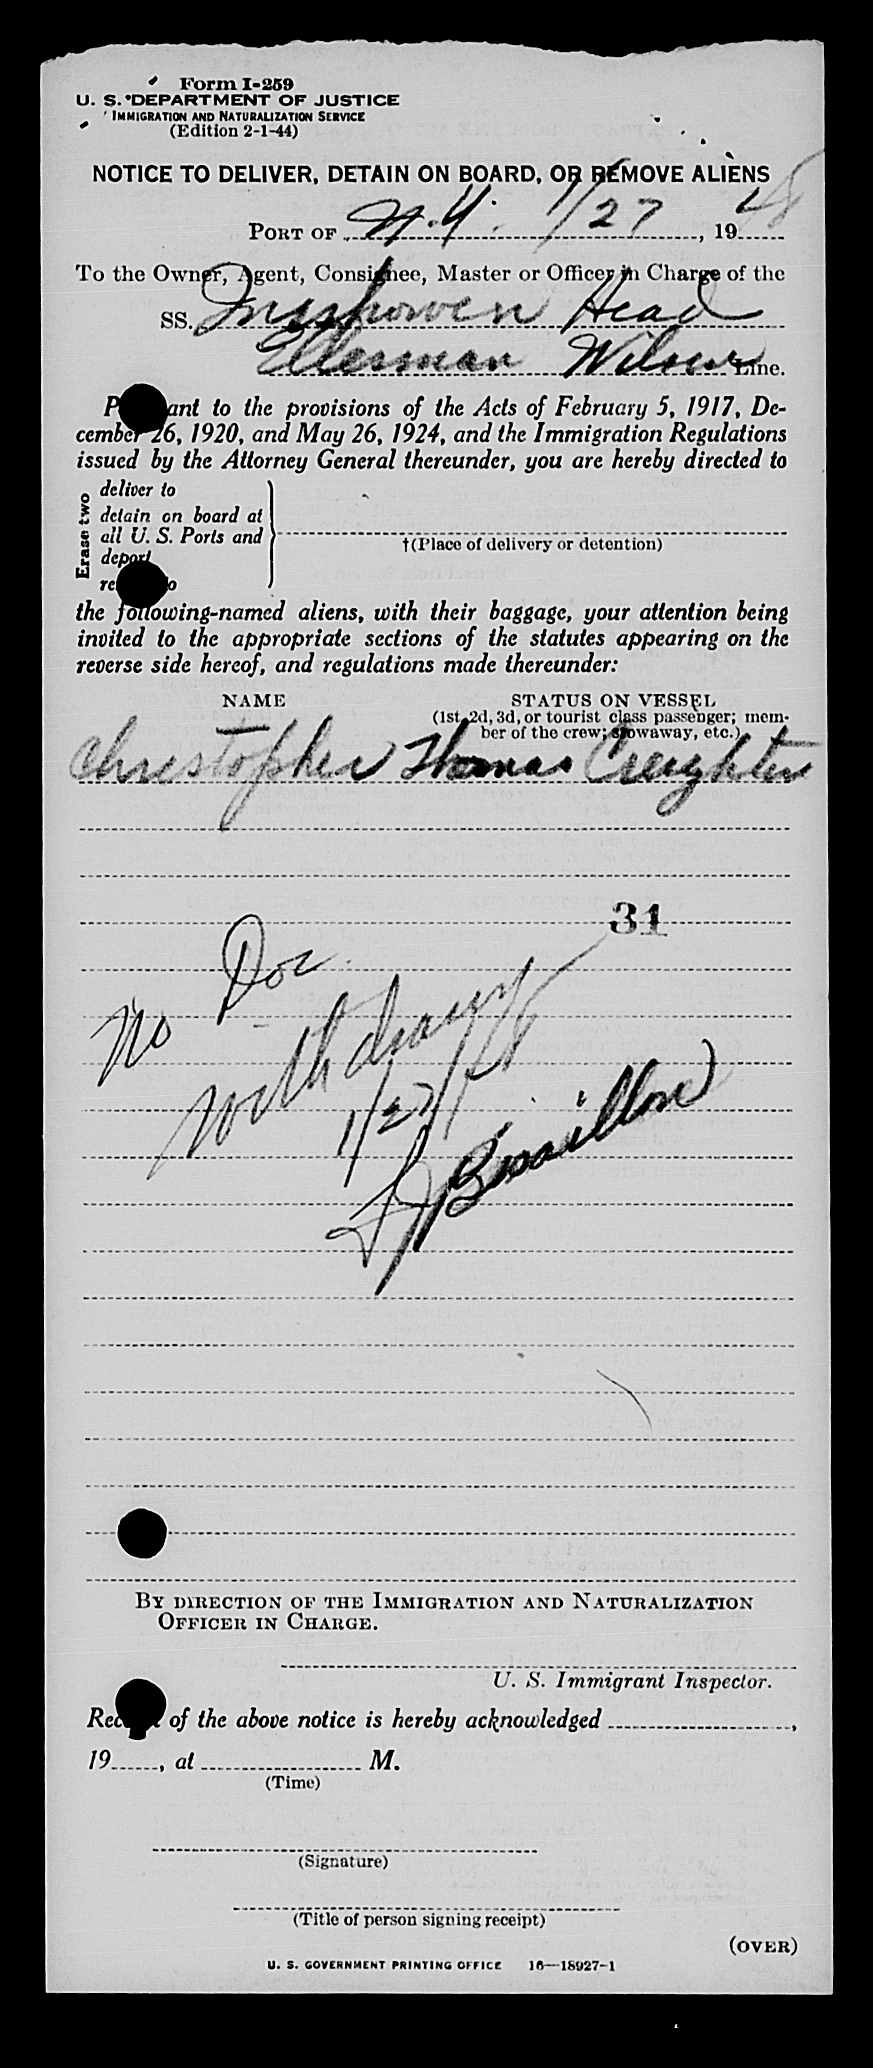 Form I-259
U. S. DEPARTMENT OF JUSTICE
IMMIGRATION AND NATURALIZATION SERVICE
(Edition 2-1-44)
NOTICE TO DELIVER, DETAIN ON BOARD, OR REMOVE ALIENS
PORT OF N.Y. 1/27, 1948
To the Owner, Agent, Consignee, Master or Officer in Charge of the
SS. Inishowen Head
Ellerman Wilson Line.
P ant to the provisions of the Acts of February 5, 1917, De-
cember 26, 1920, and May 26, 1924, and the Immigration Regulations
issued by the Attorney General thereunder, you are hereby directed to
Erase two
deliver to
detain on board at
all U. S. Ports and
deport
re o
†(Place of delivery or detention)
the following-named aliens, with their baggage, your attention being
invited to the appropriate sections of the statutes appearing on the
reverse side hereof, and regulations made thereunder:
NAME
STATUS ON VESSEL
(1st, 2d, 3d, or tourist class passenger; mem-
ber of the crew; stowaway, etc.)
Christopher Thomas Creighton
31
No Doc
Withdrawn
1/27/48
By DIRECTION OF THE IMMIGRATION AND NATURALIZATION
OFFICER IN CHARGE.
U. S. Immigrant Inspector.
Receipt of the above notice is hereby acknowledged ,
19 , at M.
(Time)
(Signature)
(Title of person signing receipt)
(OVER)
U. S. GOVERNMENT PRINTING OFFICE 16—18927-1